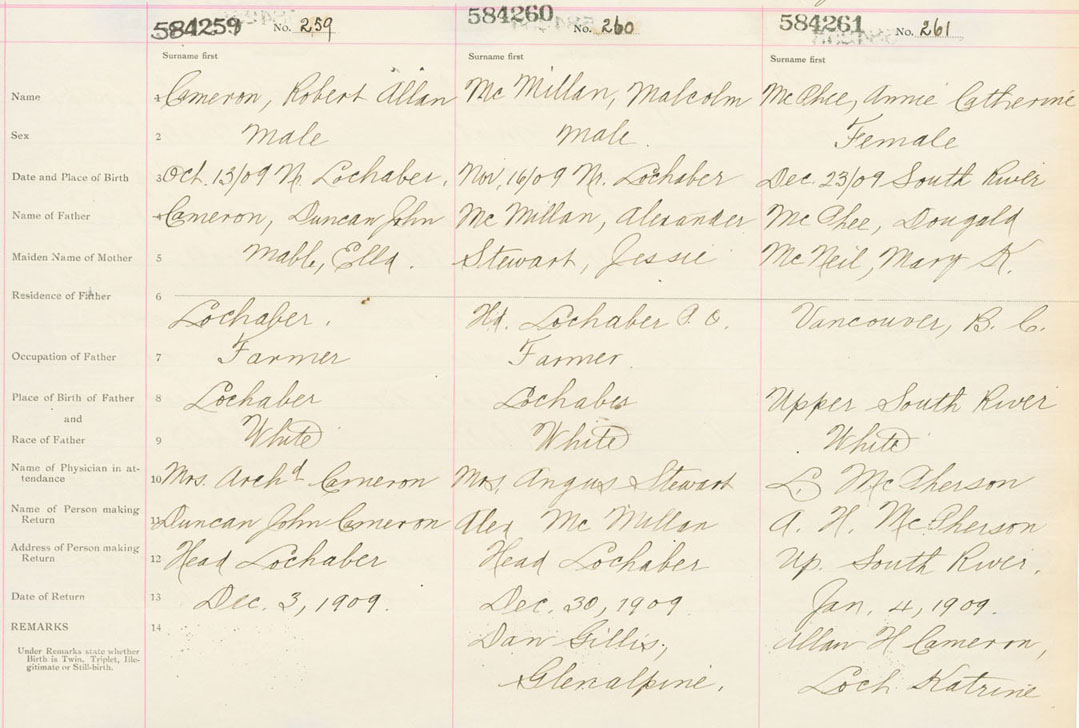 584259 No. 259 584260 No. 260 584261 No. 261
Surname first Surname first Surname first
Name 1 Cameron, Robert Allan Mc Millan, Malcolm McPhee, Annie Catherine
Sex 2 Male Male. Female
Date and Place of Birth 3 Oct. 13/09 N. Lochaber. Nov. 16/09 N. Lochaber Dec. 23/09 South River
Name of Father 4 Cameron, Duncan John Mc Millan, Alexander Mc Phee, Dougald
Maiden Name of Mother 5 Mable, Ella. Stewart, Jessie McNeil, Mary K.
Residence of Father 6
Lochaber. Hd. Lochaber P.O. Vancouver, B.C.
Occupation of Father 7 Farmer Farmer.
Place of Birth of Father 8 Lochaber Lochaber Upper South River
and
Race of Father 9 White White White
Name of Physician in at-
tendance 10 Mrs. Archd Cameron Mrs. Angus Stewart L McPherson
Name of Person making
Return 11 Duncan John Cameron Alex Mc Millan A. H. McPherson
Address of Person making
Return 12 Head Lochaber Head Lochaber Up. South River.
Date of Return 13 Dec. 3, 1909. Dec. 30, 1909 Jan. 4, 1909.
REMARKS 14 Dan Gillis, Allan H Cameron,
Under Remarks state whether
Birth is Twin, Triplet, Ille-
gitimate or Still-birth.
Glenalpine. Loch Katrine